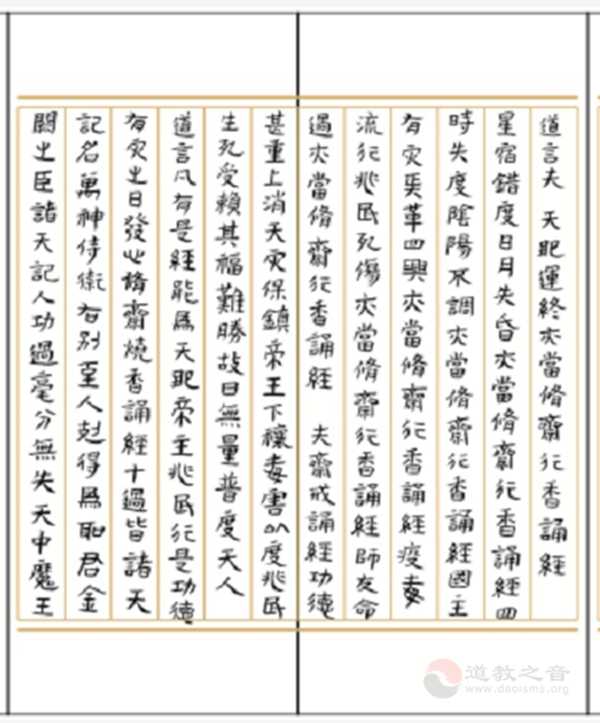 道言夫 天地運終亦當脩齋行香誦經
星宿錯度日月失昏亦當脩齋行香誦經四
時失度陰陽不調亦當脩齋行香誦經國主
有灾兵革四興亦當脩齋行香誦經疫毒
流行兆民死傷亦當脩齋行香誦經師友命
過亦當脩齋行香誦經 夫齋戒誦經功德
甚重上消天灾保鎮帝王下禳毒害以度兆民
生死受賴其福難勝故曰無量普度天人
道言凡有是經能為天地帝主兆民行是功德
有灾之日發心脩齋燒香誦經十過皆諸天
記名萬神侍衛右别至人尅得為聖君金
闕之臣諸天記人功過毫分無失天中魔王
道教之音
www.daoisms.org